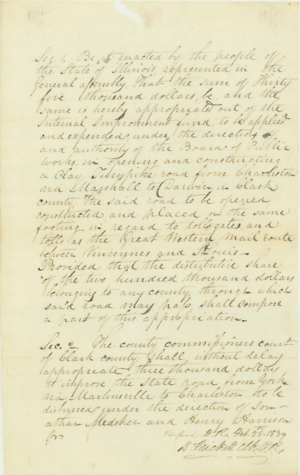 Sec 1. Be it enacted by the people of
the State of Illinois, represented in the
general assembly, That the sum of Thirty
five thousand dollars, be and the
same is hereby appropriated out of the
Internal Improvement fund, to be applied
and expended under the direction
and authority of the Board of Public
works, in opening and constructing
a Clay Turnpike road from Charleston
via Marshall to Darwin in Clark
county, the said road to be opened
constructed and placed on the same
footing in regard to tollgates and
tolls as the Great Western mail route
between Vincennes and St Louis.
Provided that the distributive share
of the two hundred thousand dollars
belonging to any county through which
said road may pass shall compose
a part of this appropriation.
Sec. 2. The county commissioners court
of Clark county shall, without delay
appropriate three thousand dollars
to improve the State road from York
via Martinsville to Charleston to be
disbursed under the direction of Jon-
athan and Henry Harrison
Feb. 23. 1839